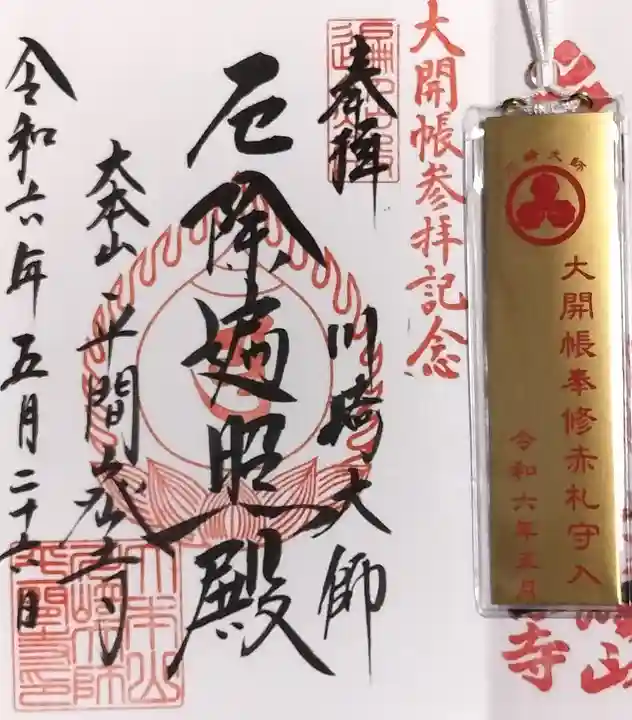 大開帳参拝記念
奉拝
川崎大師
厄除遍照殿
大本山 平間寺
令和六年五月二十六日
川崎大師
大開帳奉修赤札守入
令和六年五月
山
寺